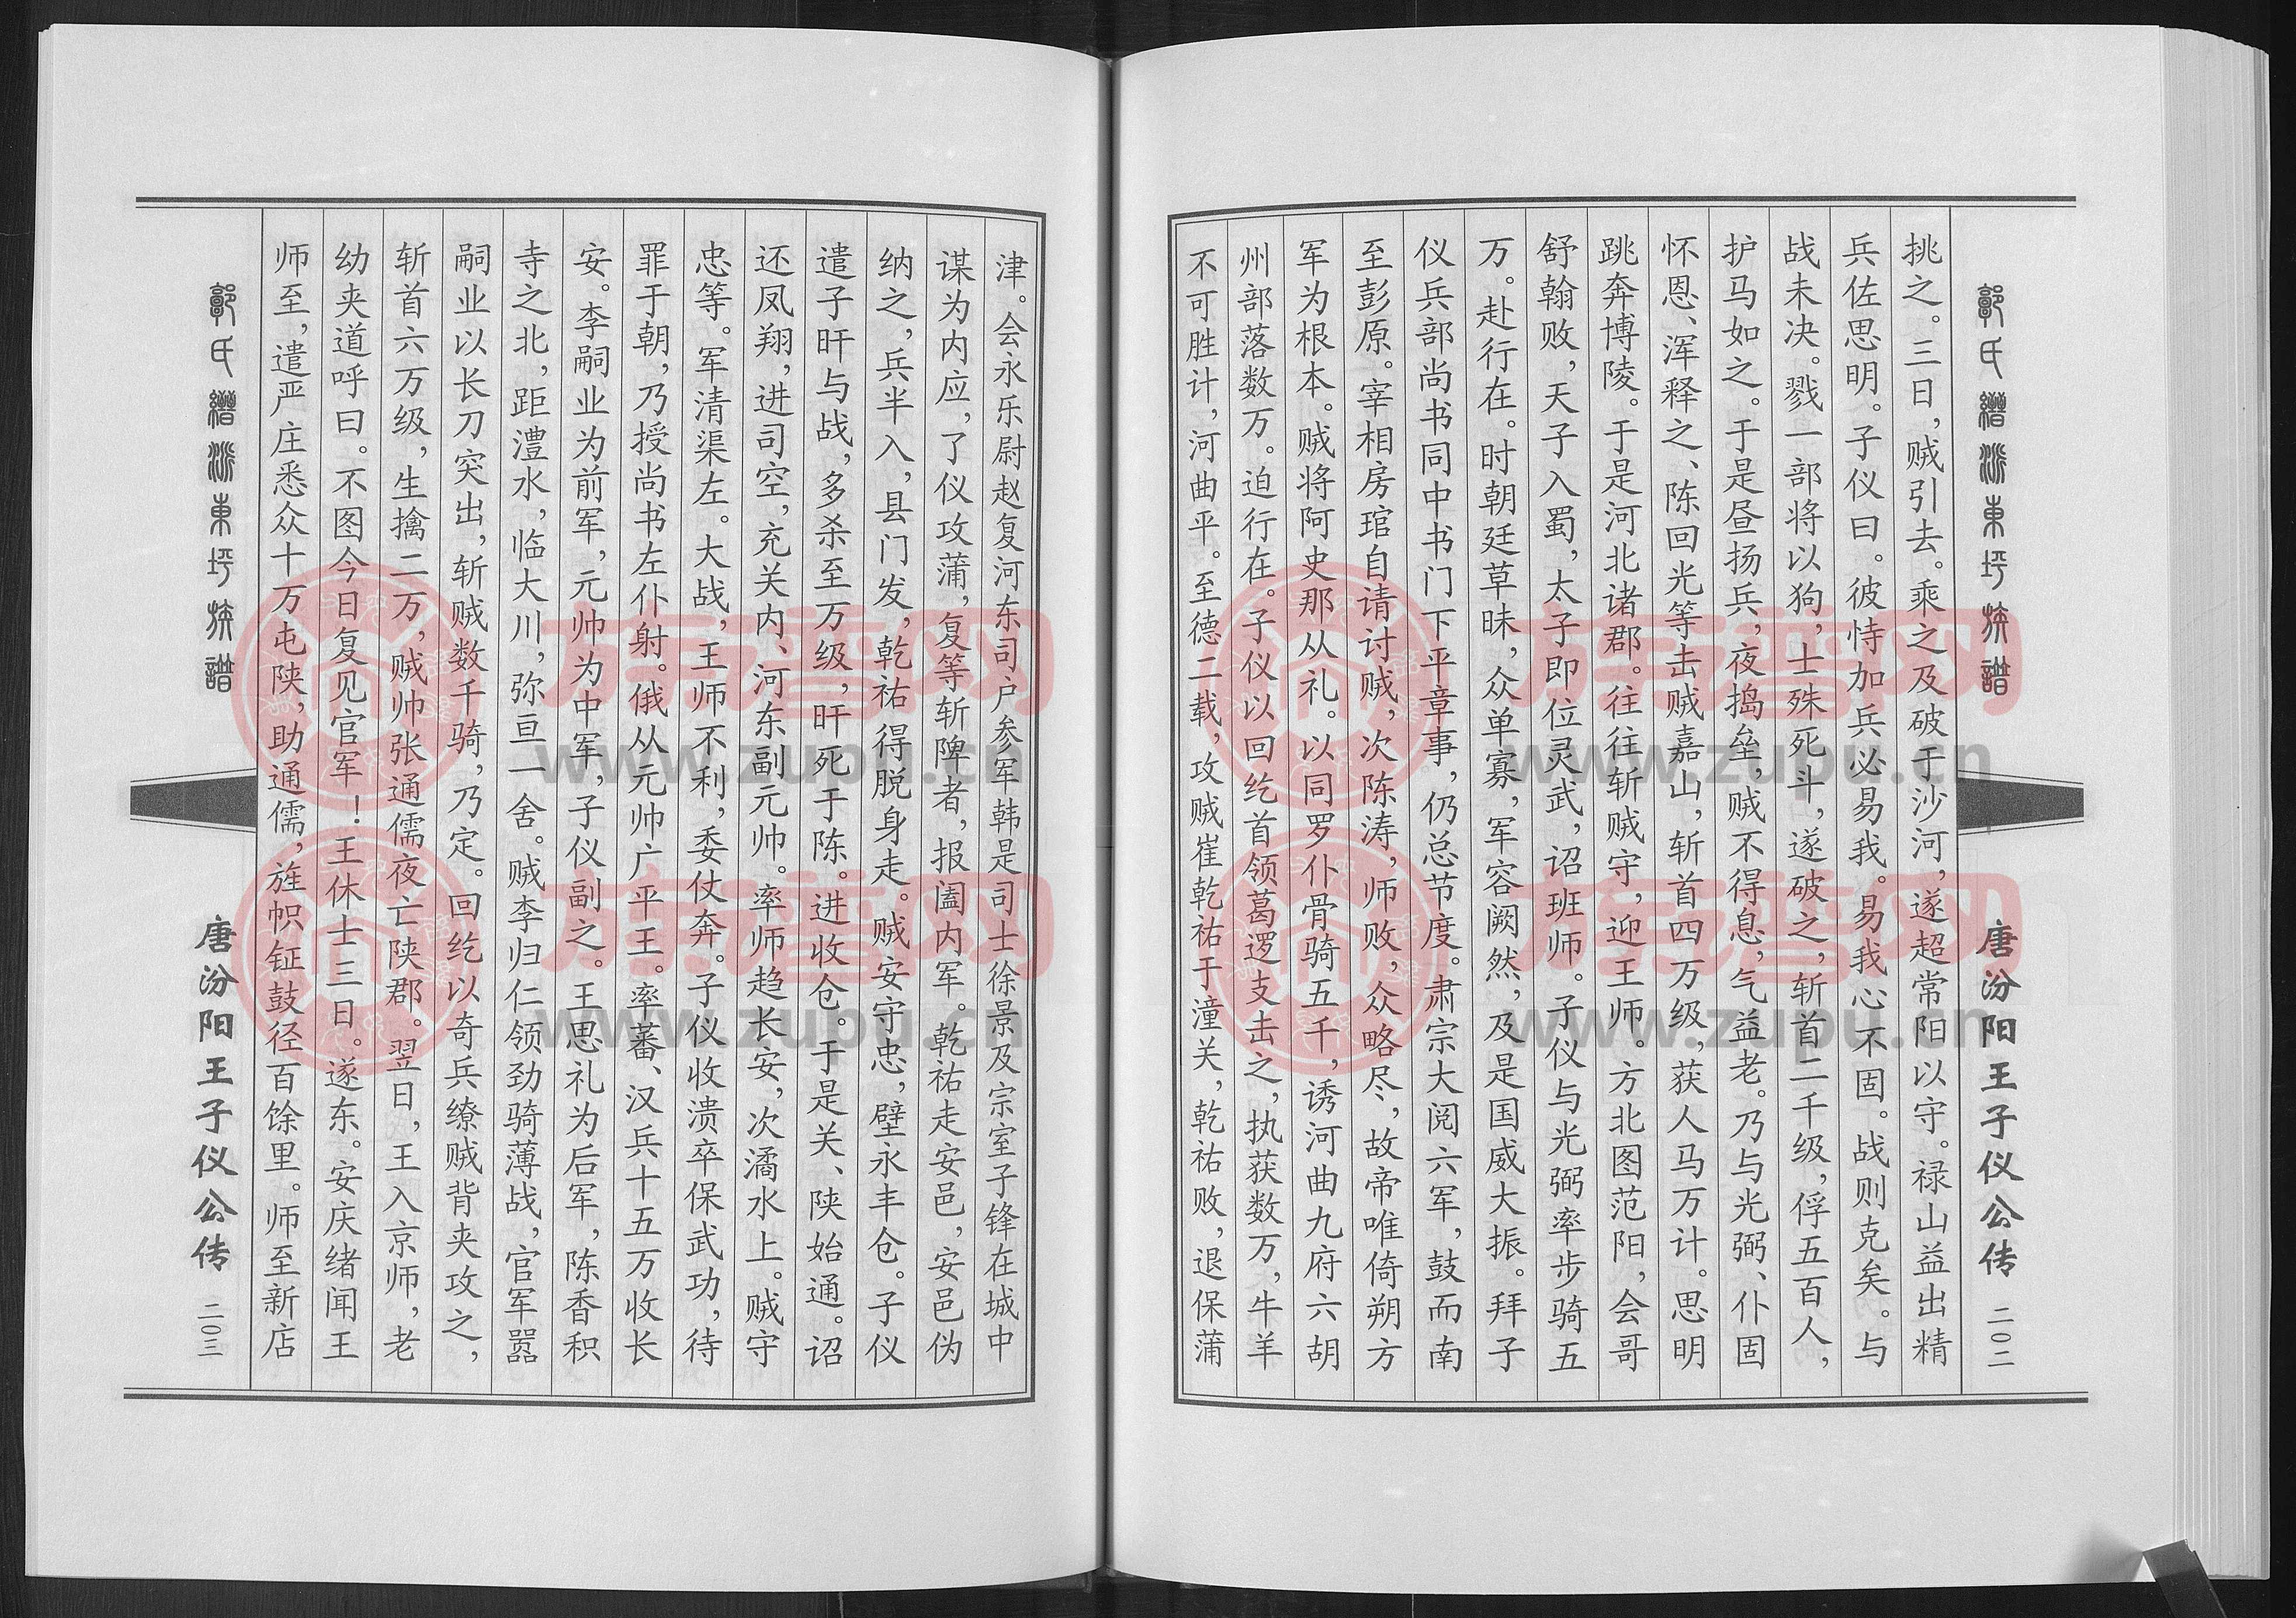 唐汾阳王子仪公传
二〇二
挑之。三日，贼引去。乘之及破于沙河，遂超常阳以守。禄山益出精
兵佐思明。子仪曰。彼恃加兵必易我。易我心不固。战则克矣。与
战未决。戮一部将以狗，士殊死斗，遂破之，斩首二千级，俘五百人，
护马如之。于是昼扬兵，夜捣垒，贼不得息，气益老。乃与光弼、仆固
怀恩、浑释之、陈回光等击贼嘉山，斩首四万级，获人马万计。思明
跳奔博陵。于是河北诸郡。往往斩贼守，迎王师。方北图范阳，会哥
舒翰败，天子入蜀，太子即位灵武，诏班师。子仪与光弼率步骑五
万。赴行在。时朝廷草昧，众单寡，军容阙然，及是国威大振。拜子
仪兵部尚书同中书门下平章事，仍总节度。肃宗大阅六军，鼓而南
至彭原。宰相房琯自请讨贼，次陈涛，师败，众略尽，故帝唯倚朔方
军为根本。贼将阿史那从礼。以同罗仆骨骑五千，诱河曲九府六胡
州部落数万。迫行在。子仪以回纥首领葛逻支击之，执获数万，牛羊
不可胜计，河曲平。至德二载，攻贼崔乾祐于潼关，乾祐败，退保蒲
津。会永乐尉赵复河东司户参军韩是司士徐景及宗室子锋在城中
谋为内应，了仪攻蒲，复等斩陴者，报阖内军。乾祐走安邑，安邑伪
纳之，兵半入，县门发，乾祐得脱身走。贼安守忠，壁永丰仓。子仪
遣子旰与战，多杀至万级，旰死于陈。进收仓。于是关、陕始通。诏
还凤翔，进司空，充关内、河东副元帅。率师趋长安，次潏水上。贼守
忠等。军清渠左。大战，王师不利，委仗奔。子仪收溃卒保武功，待
罪于朝，乃授尚书左仆射。俄从元帅广平王。率蕃、汉兵十五万收长
安。李嗣业为前军，元帅为中军，子仪副之。王思礼为后军，陈香积
寺之北，距澧水，临大川，弥亘一舍。贼李归仁领劲骑薄战，官军嚣
嗣业以长刀突出，斩贼数千骑，乃定。回纥以奇兵缭贼背夹攻之，
斩首六万级，生擒二万，贼帅张通儒夜亡陕郡。翌日，王入京师，老
幼夹道呼曰。不图今日复见官军！王休士三日。遂东。安庆绪闻王
师至，遣严庄悉众十万屯陕，助通儒，旌帜钲鼓径百馀里。师至新店
唐汾阳王子仪公传
二〇三
族谱网
www.zupu.cn
族谱网
www.zupu.cn
族谱网
www.zupu.cn
族谱网
www.zupu.cn